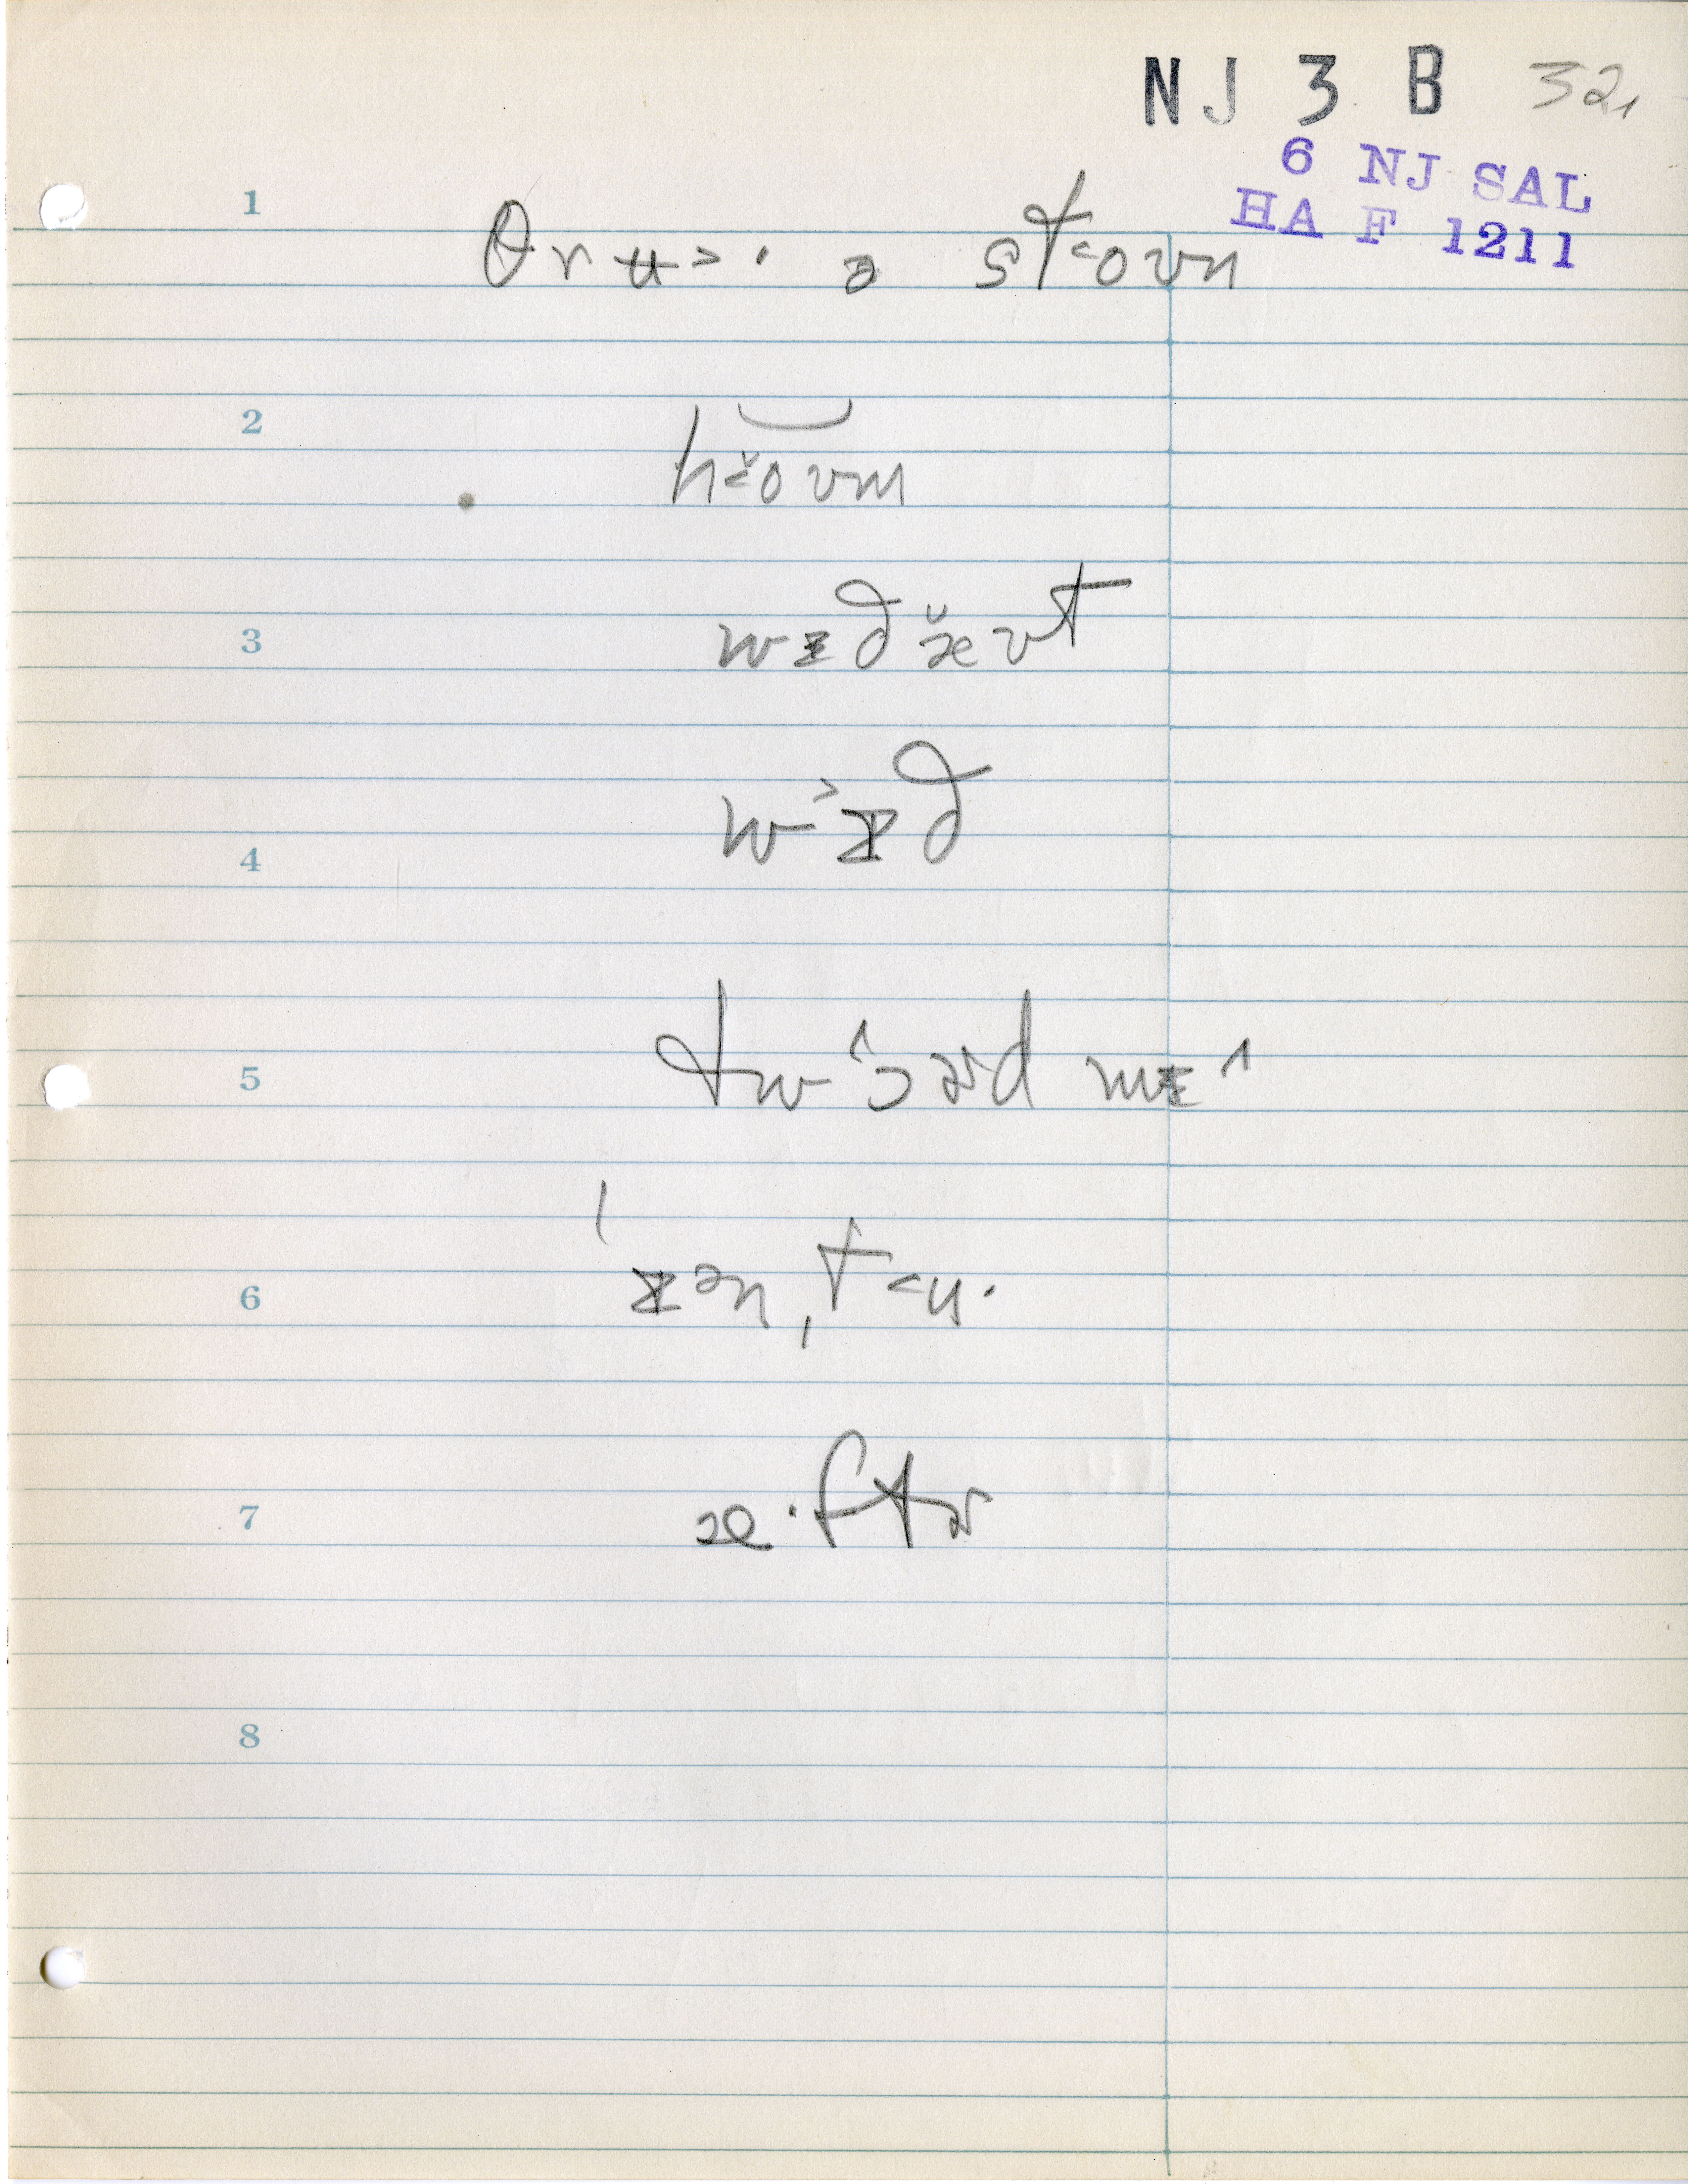 NJ 3 B 32,
6 NJ SAL
HA F 1211
1 θrʉ˃· ə st˂oʊn
2 h˂ŏʊm
3 wɪðæ̆ʊt
4 wɪ˃ð
5 tw ɔ^ɚd mɪ^
6 ˈɪənˌt˂u·
7 æ·ftɚ
8